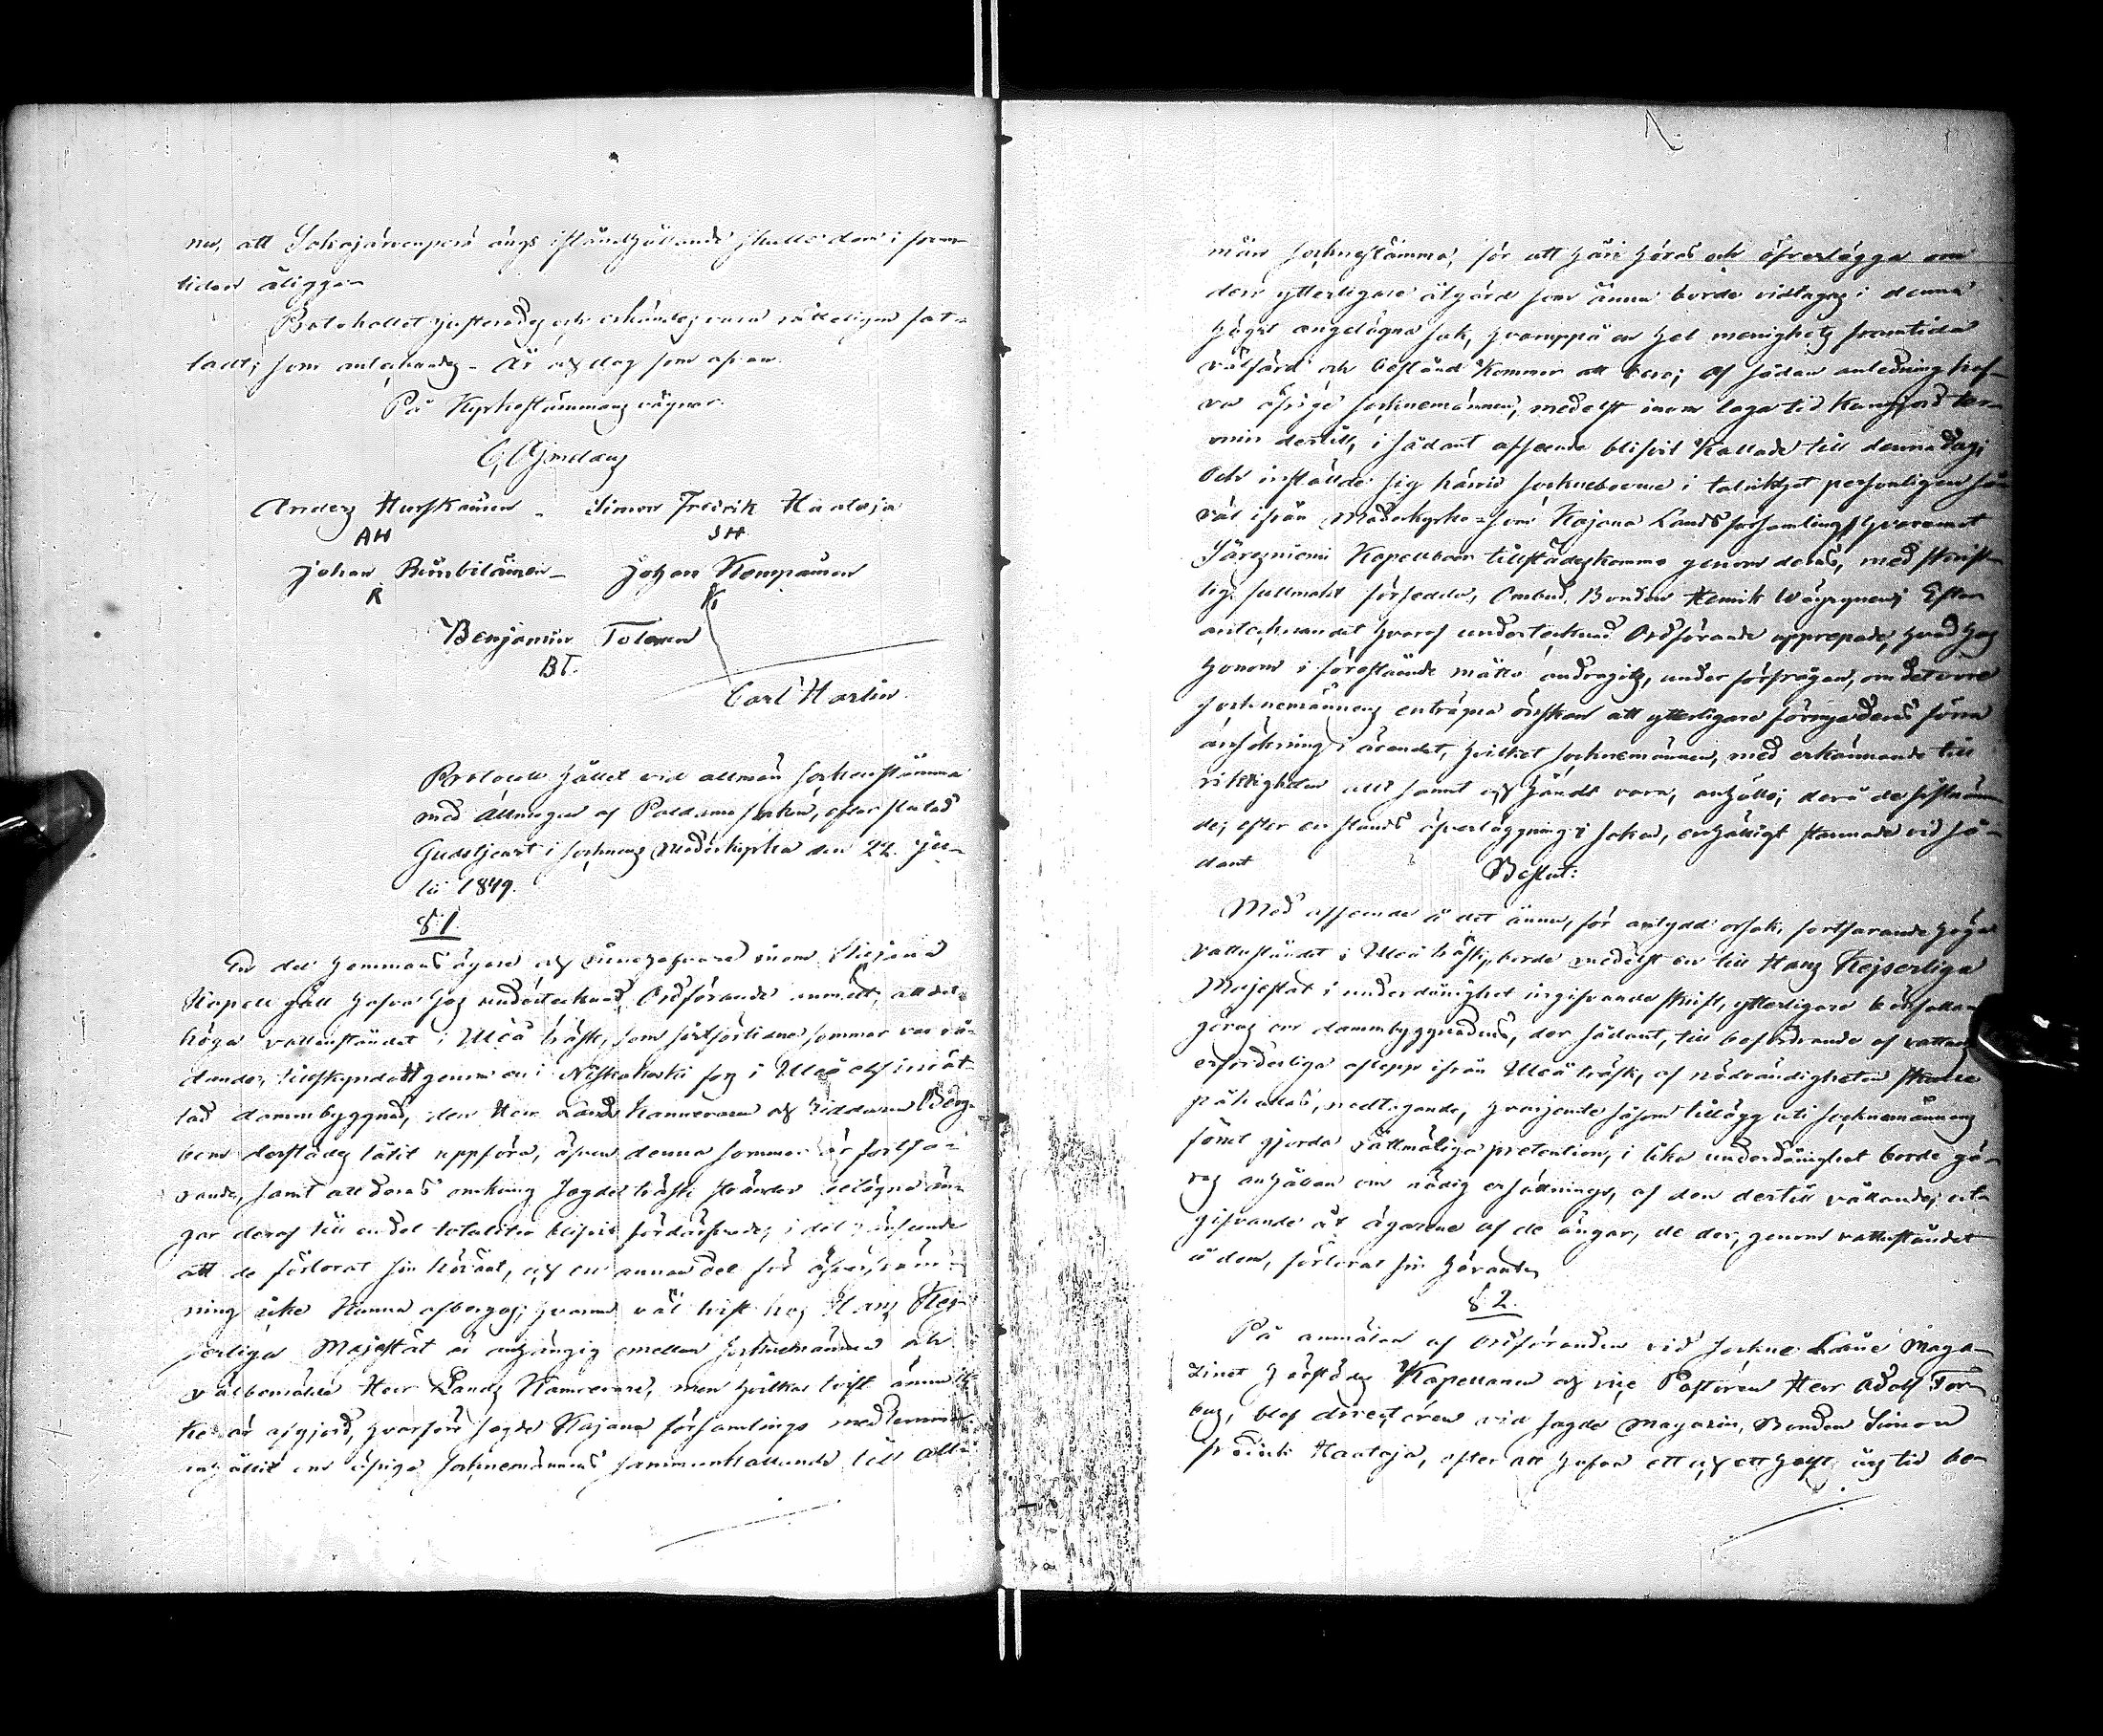 nu, att Jokajärvenperä ängs iståndhållande skulle dem i fram-
tiden åligga
Protokollet justerades och erkändes vara rätteligen fat-
tadt; som antecknades. År och dag som ofvan.
På Kyrkostämmans vägnar.
Anders Hurskainen _ Simon Fredrik Haataja
AH SH
Johan Rimbiläinen _ Johan Kompainen
R K
Benjamin Tolonen
BT.
Carl Harlin.
Protocoll hållet vid allmän sockenstämma
med Allmogen af Paldamo socken, efter slutad
Gudstjenst i socknens Moderkyrka den 22. Ju-
lii 1849.
§ 1.
En del hemmans ägare och åboer inom
Kapell gäll hafva hos undertecknad Ordförande anmält, att det
höga vattenståndet i Uleå träsk, som sistförflidne sommar var rå-
dande, tillskyndadt genom en i Niskakoski fors i Uleå elf inrät-
tad dammbyggnad, den Herr Lands Kamreraren och Riddaren Berg-
bom derstädes låtit uppföra, äfven denna sommar är fortfa-
rande, samt att deras omkring sagde träsk stränder belägna än-
gar deraf till en del totaliter blifvit fördärfvade, i det afseende
att de förlorat sin höväxt, och en annan del för öfversväm-
ning icke kunna afbergas; hvarom väl tvist hos Hans Kej-
serliga Majestät är anhängig emellan socknemännen och
välbemälde Herr Lands Kamrerare, men hvilken tvist ännu ic-
ke är afgjord, hvarföre sagde Kajana församlings medlemmar
anhållit om öfrige socknemännens sammankallande till all-
män socknestämma, för att häri höras och öfverlägga om
den ytterligare åtgärd som ännu borde vidtagas i denna
högst angelägna sak, hvaruppå en hel menighets framtida
välfärd och bestånd kommer att bero; af sådan anledning haf-
va öfrige socknemännen, medelst inom laga tid kungjord ter-
min dertill, i sådant afseende blifvit kallade till denna dag;
och inställde sig härvid sockneboerne i talrikhet personligen så-
väl ifrån Moderkyrko- som Kajana Landsförsamling, hvaremot
Säresniemi Kapellboer tillstädeskommo genom deras, med skrift-
lig fullmakt försedda, Ombud, Bonden Henrik Väyrynen; Efter
antecknandet hvaraf undertecknad Ordförande upprepade, hvad hos
honom i förestående måtto andragits, under förfrågan, om det vore
socknemännens enträgna önskan att ytterligare förnya deras förra
ansökning i ärendet, hvilket socknemännen, med erkännande till
riktigheten allt sannt och händt vara, anhöllo; derå de sistnämn-
de; efter en stunds öfverläggning i saken, enhälligt stannade vid så-
dant
Beslut:
Med afseende å det ännu, för antydd orsak, fortfarande höga
vattuståndet i Uleå träsk, borde medelst en till Hans Kejserliga
Majestät i underdånighet ingifvande skrift, ytterligare bönfallan
göras om dammbyggnadens, der sådant, till befordrande af vattnets
erforderliga aflopp ifrån Uleå träsk, af nödvändigheten skulle
påkallas, nedtagande, hvarjemte såsom tillägg uti socknemännens
förut gjorda rättmätiga pretention, i lika underdånighet borde gö-
ras anhållan om nödig ersättnings, af den dertill vållande, ut-
gifvande åt ägarene af de ängar, de der, genom vattuståndet
å dem, förlorat sin
§ 2.
På anmälan af Ordföranden vid Sockne Låne Maga-
zinet härstädes Kapellanen och vice Pastoren Herr Adolf For-
bus, blef directören vid sagde Magazin, Bonden Simon
Fredrik Haataja, efter att hafva ett och ett halft års tid be-